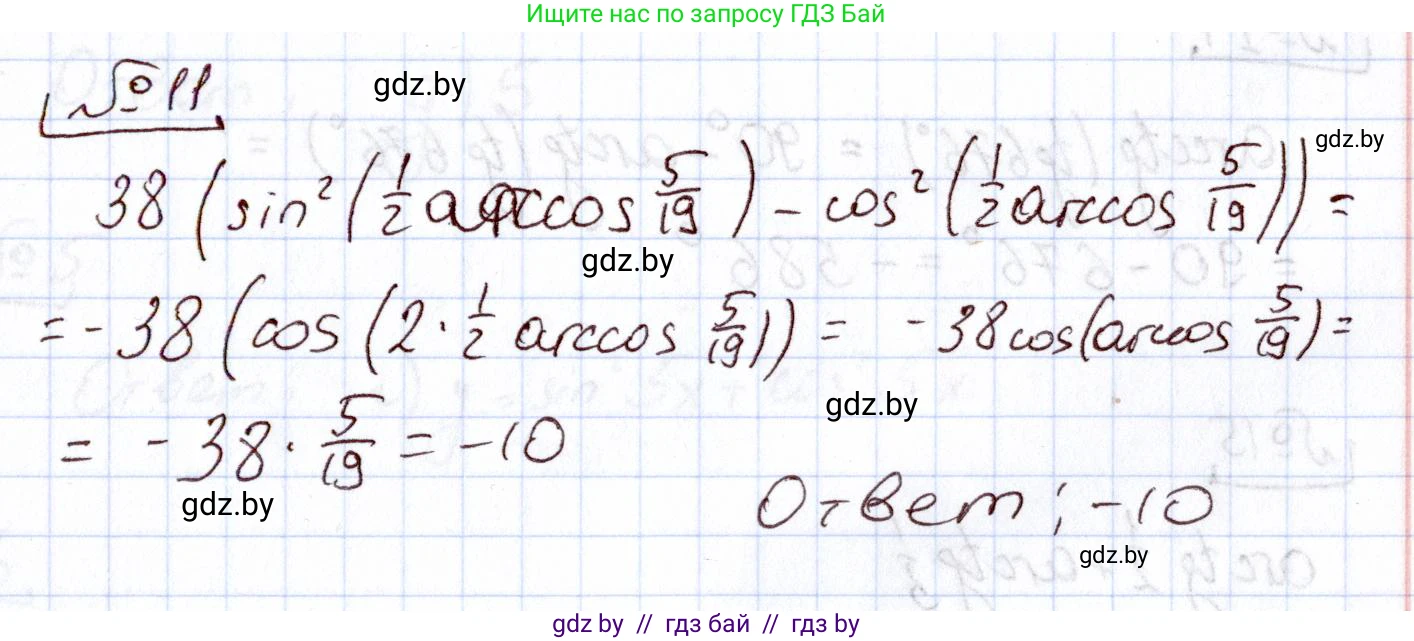 Ищите нас по запросу ГДЗ Бай
№11
gdz.by
gdz.by
38 (sin² (1/2 aarccos 5/19) - cos² (1/2 arccos 5/19)) =
gdz.by
= - 38 (cos (2 · 1/2 arccos 5/19)) = - 38 cos(arccos 5/19) =
gdz.by
= - 38 · 5/19 = -10
gdz.by
Ответ: -10
gdz.by
gdz by // гдз бай // гдз by